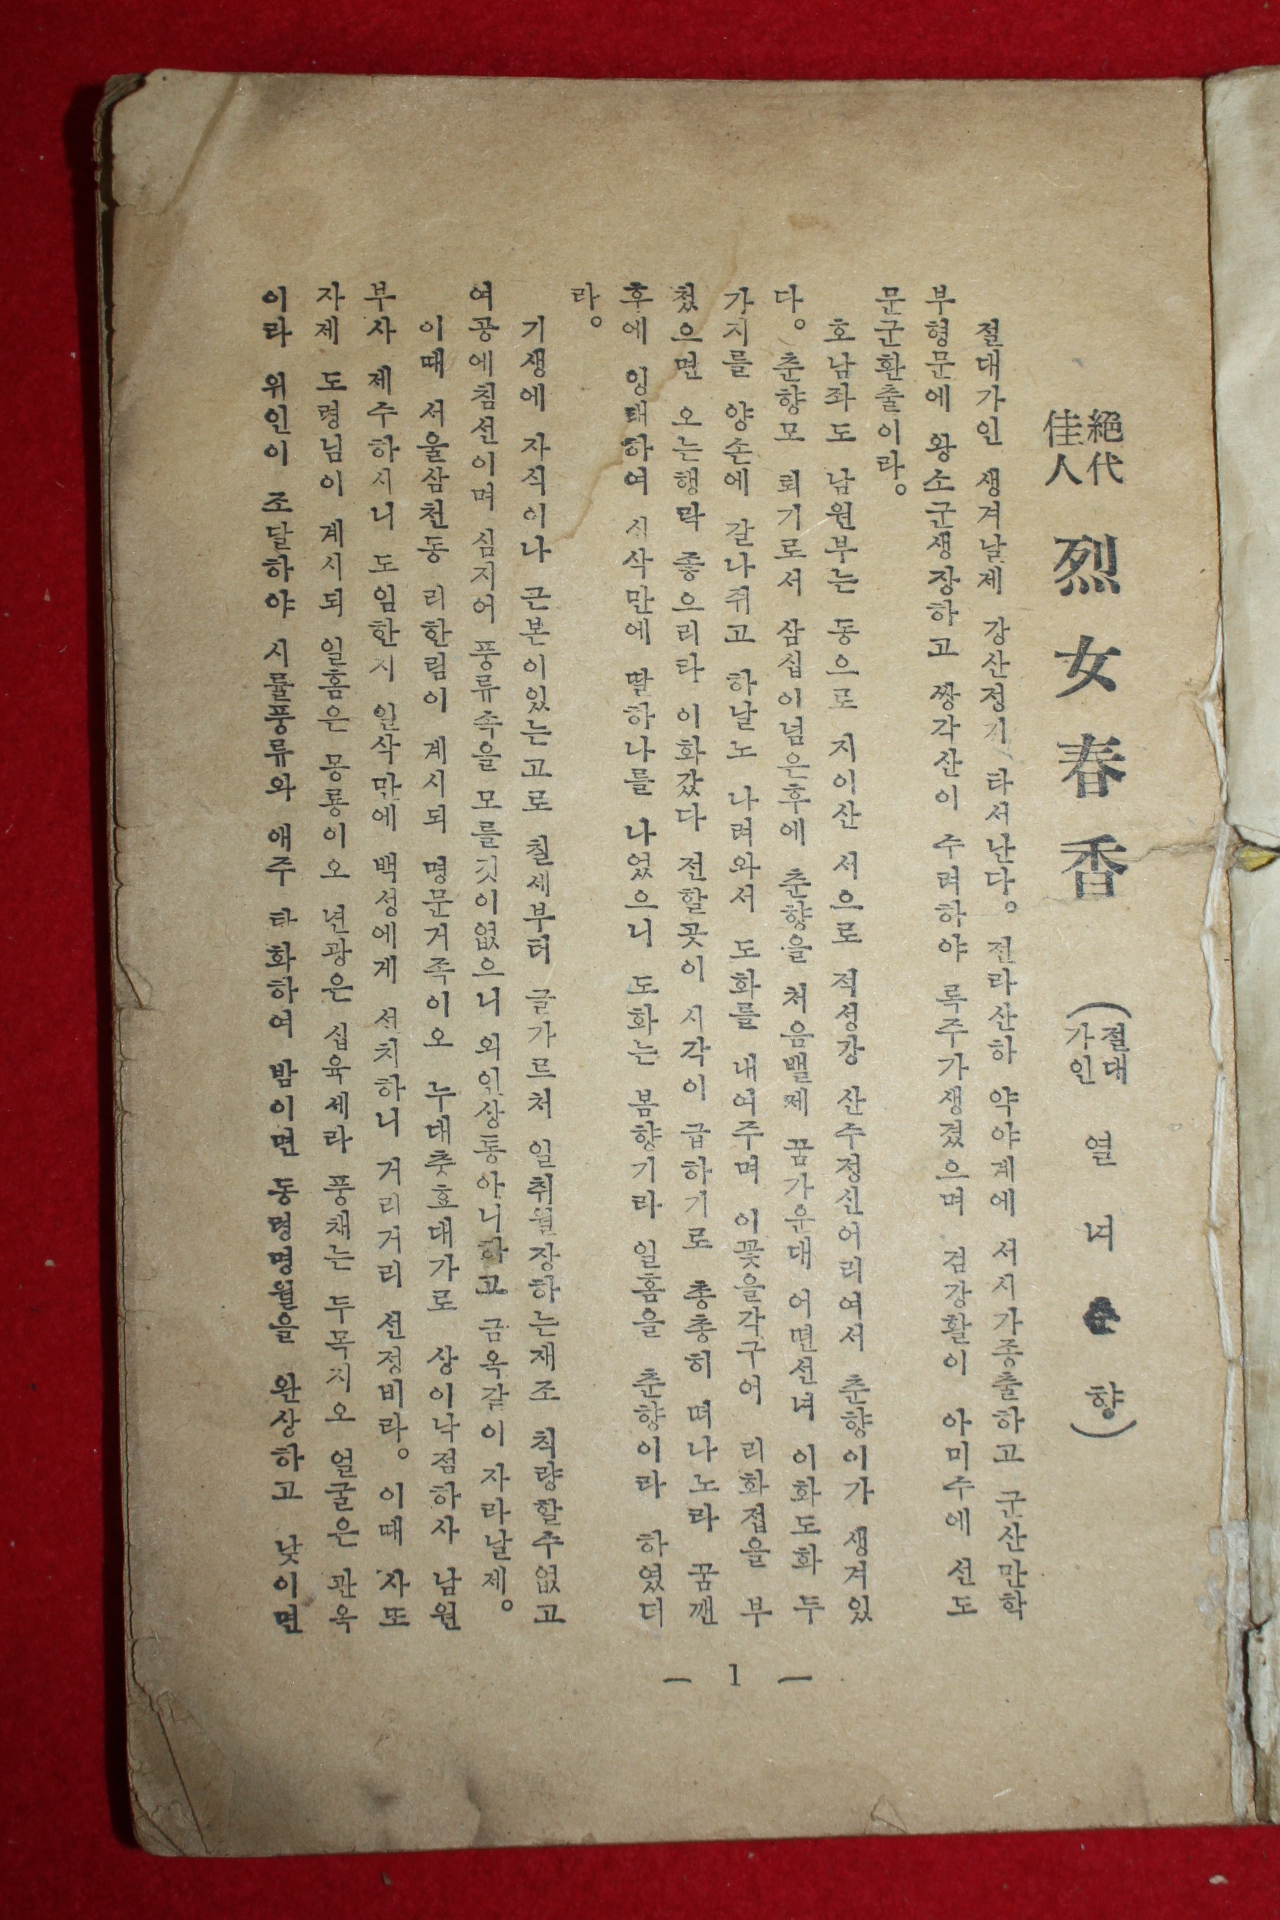 絕代佳人 烈女春香 (절대가인 열녀춘향)
절대가인 생겨날제 강산정기 타서난다。 전라산하 약야계에 서시가종출하고 군산만학
부형문에 왕소군생장하고 쌍각산이 수려하야 록주가생겼으며 검강활이 아미수에 선도
문군환출이라。
호남좌도 남원부는 동으로 지이산 서으로 적성강 산수정신어리여서 춘향이가 생겨있
다。 춘향모 퇴기로서 삼십이넘은후에 춘향을 처음밸제 꿈가운대 어떤선녀 이화도화 두
가지를 양손에 갈나쥐고 하날노 나려와서 도화를 내여주며 이꽃을각구어 리화접을 부
첬으면 오는행락 좋으리타 이화갔다 전할곳이 시각이 급하기로 총총히 떠나노라 꿈깬
후에 잉태하여 시삭만에 딸하나를 나었으니 도화는 봄향기라 일홈을 춘향이라 하였더
라。
기생에 자식이나 근본이있는고로 칠세부터 글가르처 일취월장하는재조 칙량할수없고
여공에침선이며 심지어 풍류속을 모를것이없으니 외인상통아니하고 금옥같이자라날제。
이때 서울삼천동 리한림이 계시되 명문거족이오 누대충효대가로 상이낙점하사 남원
부사 제수하시니 도임한지 일삭만에 백성에게 선치하니 거리거리 선정비라。 이때 사또
자제 도령님이 계시되 일홈은 몽룡이오 년광은 십육세라 풍채는 두목지오 얼굴은 관옥
이라 위인이 조달하야 시률풍류와 애주 타화하여 밤이면 동령명월을 완상하고 낮이면
— 1 —